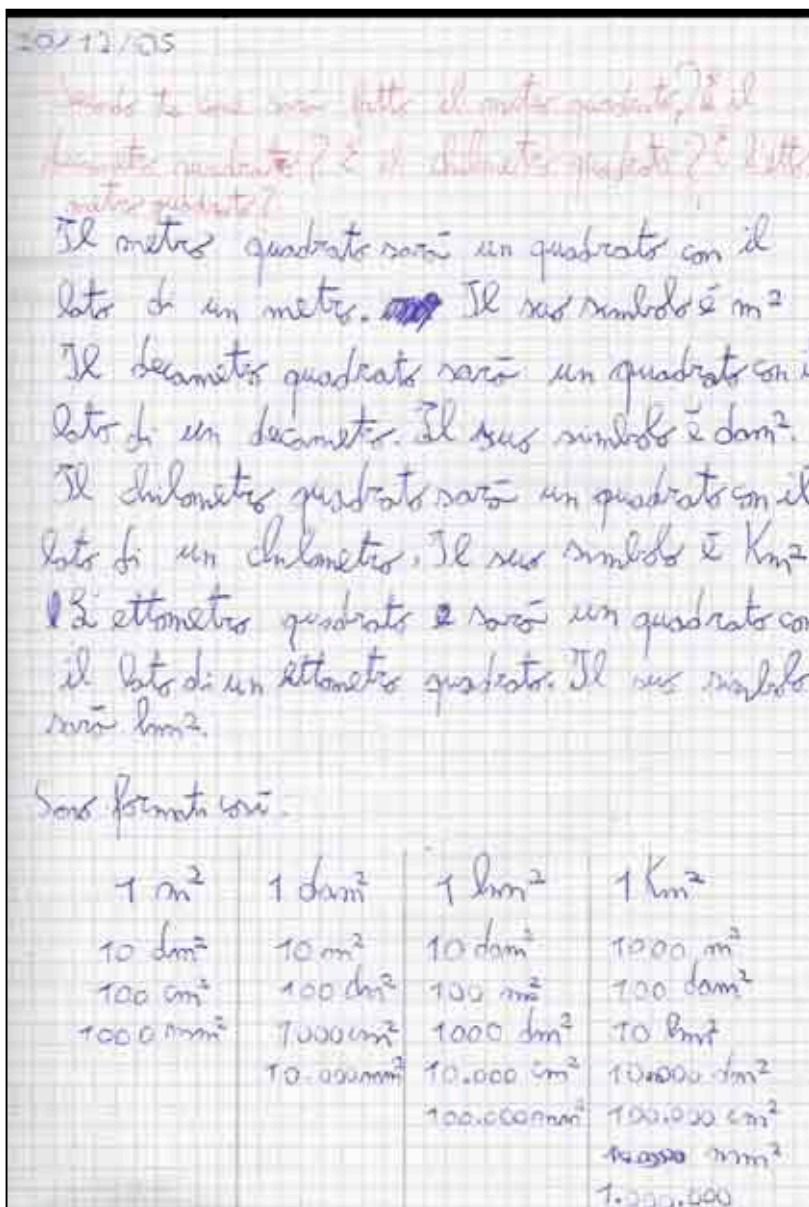 20/12/05
Secondo te come sarà fatto il metro quadrato? E il
decametro quadrato? E il chilometro quadrato? E l'etto
metro quadrato?
Il metro quadrato sarà un quadrato con il
lato di un metro. Il suo simbolo è m²
Il decametro quadrato sarà un quadrato con i
lato di un decametro. Il suo simbolo è dam².
Il chilometro quadrato sarà un quadrato con il
lato di un chilometro. Il suo simbolo è Km²
L'ettometro quadrato sarà un quadrato con
il lato di un ettometro quadrato. Il suo simbolo
sarà hm².
Sono formati così.
1 m² 1 dam² 1 hm² 1 Km²
10 dm² 10 m² 10 dam² 1000 m²
100 cm² 100 dm² 100 m² 100 dam²
1000 mm² 1000 cm² 1000 dm² 10 hm²
10.000 mm² 10.000 cm² 10.000 dm²
100.000 mm² 100.000 cm²
mm²
1.000.000